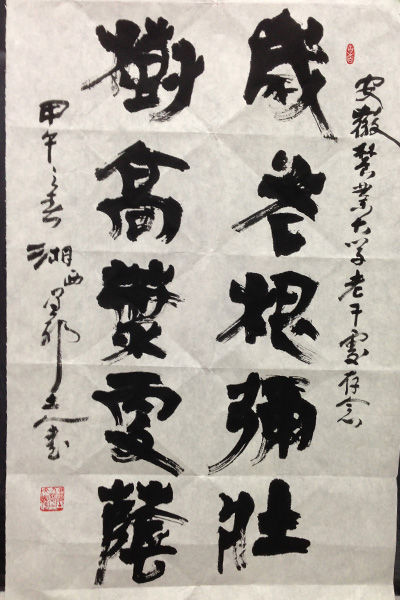 安徽農業大学老干處存念
歲老根彌壯
樹高葉更蔭
甲午之春湘西